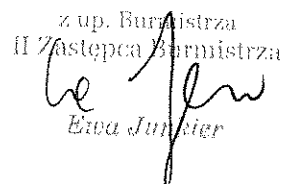 z up. Burmistrza
II Zastępca Burmistrza
Ewa